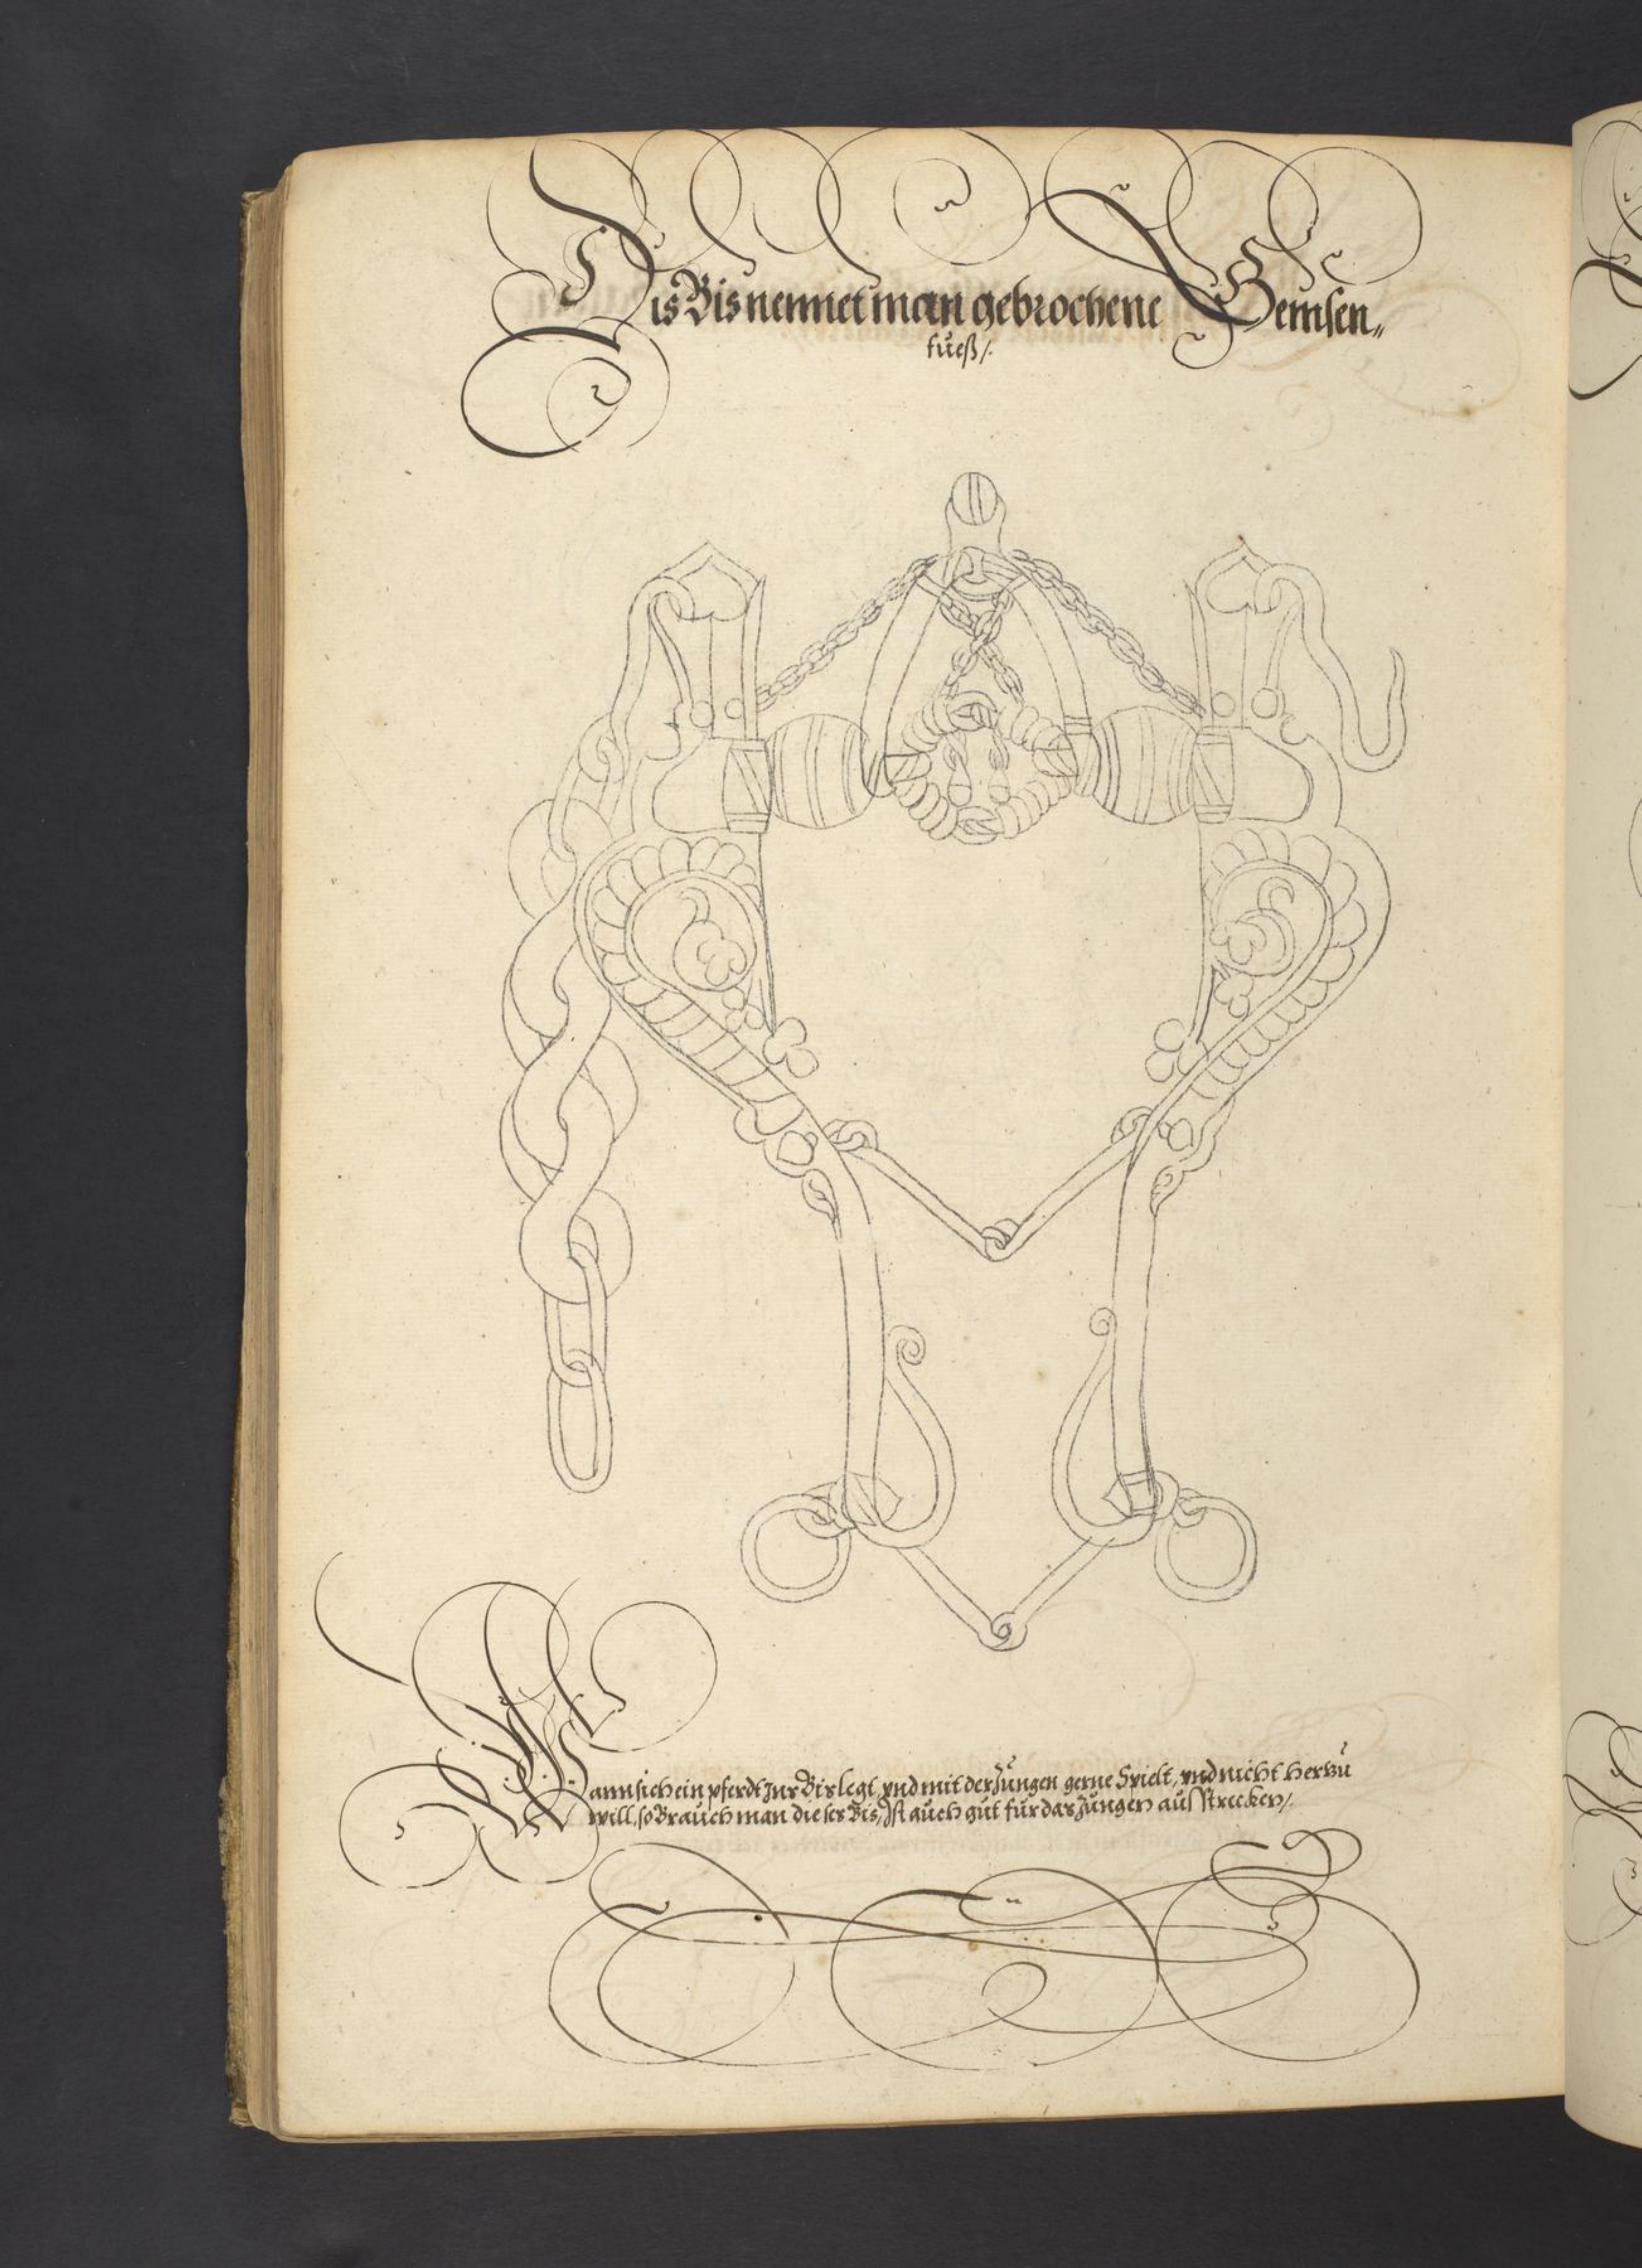 Dis Bis nennet man gebrochene Gemsen„
fueß/.
Wann sich ein pferdt zur Bis legt, vnd mit der Zungen gerne Spielt, vnd nicht herzu
will, so Brauch man dieses Bis, Ist auch gut für das Zungen aus Strecken/.